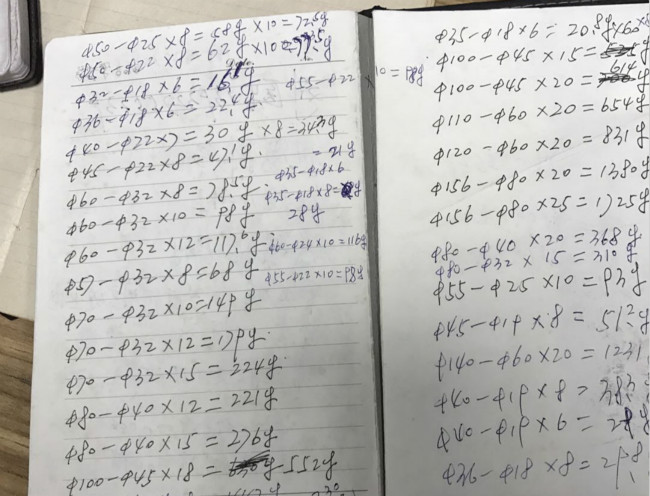 φ50-φ25×8=58g ×10=72.5g
φ50-φ22×8=62g ×10=77.5g
φ32-φ18×6=
φ55-φ22×10=98g
φ36-φ18×6=22.4g
φ40-φ22×7=30g ×8=34.3g
φ45-φ22×8=47.1g
=21g
φ35-φ18×6
φ60-φ32×8=78.5g
φ35-φ18×8=
28g
φ60-φ32×10=98g
φ60-φ32×12=117.6g
φ60-φ24×10=116g
φ57-φ32×8=68g
φ55-φ22×10=98g
φ70-φ32×10=149g
φ70-φ32×12=179g
φ70-φ32×15=224g
φ80-φ40×12=221g
φ80-φ40×15=276g
φ100-φ45×18= 552g
φ35-φ18×6=20.8g
φ100-φ45×15=
614
φ100-φ45×20=
φ110-φ60×20=654g
φ120-φ60×20=831g
φ156-φ80×20=1380g
φ156-φ80×25=1725g
φ80-φ40×20=368g
φ80-φ32×15=310g
φ55-φ25×10=93g
φ45-φ19×8=51.2g
φ140-φ60×20=1231
φ40-φ19×8=38.3
φ40-φ19×6=
φ36-φ18×8=29.8